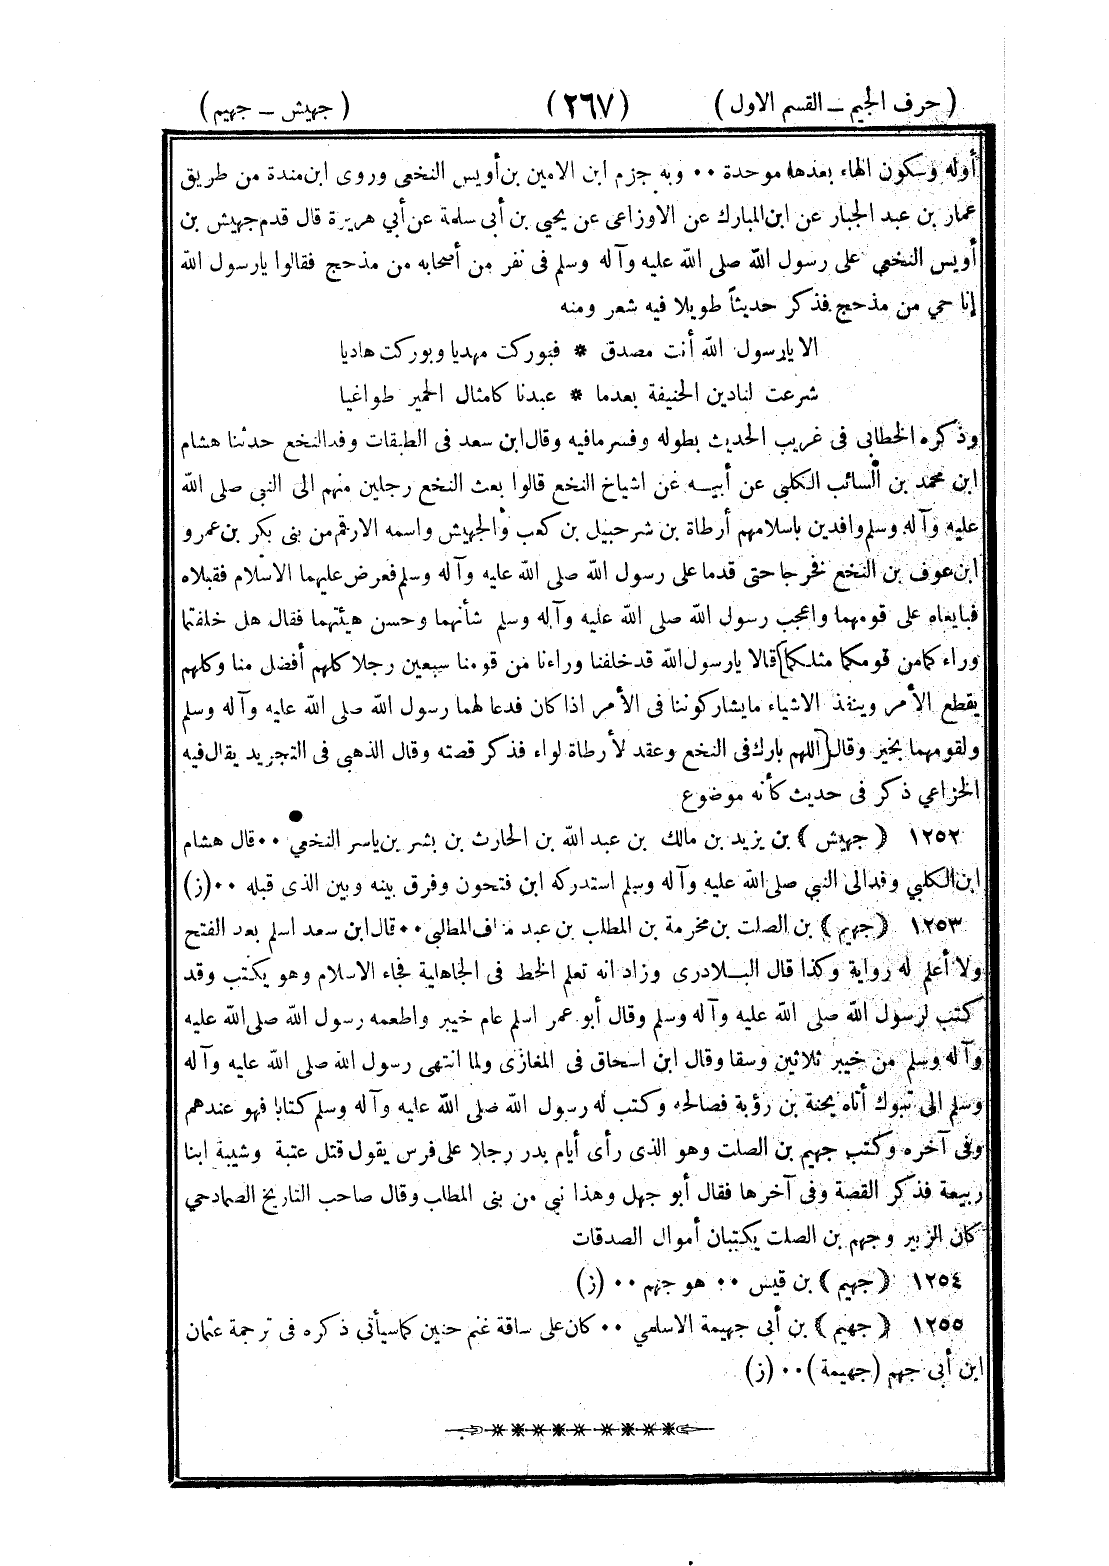 ( حرف الجيم ــ القسم الاول )
( ٢٦٧ )
( جهيش ــ جهيم )
أوله وسكون الهاء بعدها موحدة ٠٠ وبه جزم ابن الامين بن أويس النخعى وروى ابن مندة من طريق
عمار بن عبد الجبار عن ابن المبارك عن الاوزاعى عن يحيي بن أبى سلمة عن أبي هريرة قال قدم جهيش بن
أويس النخعي على رسول الله صلى الله عليه وآله وسلم فى نفر من أصحابه من مذحج فقالوا يارسول الله
إنا حي من مذحج فذكر حديثاً طويلا فيه شعر ومنه
الا يارسول الله أنت مصدق * فبوركت مهديا وبوركت هاديا
شرعت لنا دين الحنيفة بعدما * عبدنا كامثال الحمير طواغيا
وذكره الخطابى فى غريب الحديث بطوله وفسر مافيه وقال ابن سعد فى الطبقات وفد النخع حدثنا هشام
ابن محمد بن السائب الكلبي عن أبيــه عن اشياخ النخع قالوا بعث النخع رجلين منهم الى النبي صلى الله
عليه وآله وسلم وافدين باسلامهم أرطاة بن شرحبيل بن كعب والجهيش واسمه الارقم من بنى بكر بن عمرو
ابن عوف بن النخع فخرجا حتى قدما على رسول الله صلى الله عليه وآله وسلم فعرض عليهما الاسلام فقبلاه
فبايعاه على قومهما واعجب رسول الله صلى الله عليه وآله وسلم شأنهما وحسن هيئتهما فقال هل خلفتما
وراءكما من قومكما مثلكما قالا يارسول الله قد خلفنا وراءنا من قومنا سبعين رجلا كلهم أفضل منا وكلهم
يقطع الأمر وينفذ الاشياء مايشاركوننا فى الأمر اذا كان فدعا لهما رسول الله صلى الله عليه وآله وسلم
ولقومهما بخير وقال اللهم بارك فى النخع وعقد لأرطاة لواء فذكر قصته وقال الذهبى فى التجريد يقال فيه
الخزاعي ذكر فى حديث كأنه موضوع
١٢٥٢ ( جهيش ) بن يزيد بن مالك بن عبد الله بن الحارث بن بشر بن ياسر النخعي ٠٠ قال هشام
ابن الكلبي وفد الى النبي صلى الله عليه وآله وسلم استدركه ابن فتحون وفرق بينه وبين الذى قبله ٠٠ (ز)
١٢٥٣ ( جهيم ) بن الصلت بن مخرمة بن المطلب بن عبد مناف المطلبى ٠٠ قال ابن سعد اسلم بعد الفتح
ولا أعلم له رواية وكذا قال البــلاذرى وزاد انه تعلم الخط فى الجاهلية فجاء الاسلام وهو يكتب وقد
كتب لرسول الله صلى الله عليه وآله وسلم وقال أبو عمر اسلم عام خيبر واطعمه رسول الله صلى الله عليه
وآله وسلم من خيبر ثلاثين وسقا وقال ابن اسحاق فى المغازى ولما انتهى رسول الله صلى الله عليه وآله
وسلم الى تبوك أتاه يحنة بن رؤبة فصالحه وكتب له رسول الله صلى الله عليه وآله وسلم كتابا فهو عندهم
وفى آخره وكتب جهيم بن الصلت وهو الذى رأى أيام بدر رجلا على فرس يقول قتل عتبة وشيبة ابنا
ربيعة فذكر القصة وفى آخرها فقال أبو جهل وهذا نبي من بنى المطلب وقال صاحب التاريخ الصمادحي
كان الزبير وجهم بن الصلت يكتبان أموال الصدقات
١٢٥٤ ( جهيم ) بن قيس ٠٠ هو جهم ٠٠ (ز)
١٢٥٥ ( جهيم ) بن أبى جهيمة الاسلمي ٠٠ كان على ساقة غنم حنين كما سيأتى ذكره فى ترجمة عثمان
ابن أبى جهم ( جهيمة ) ٠٠ (ز)